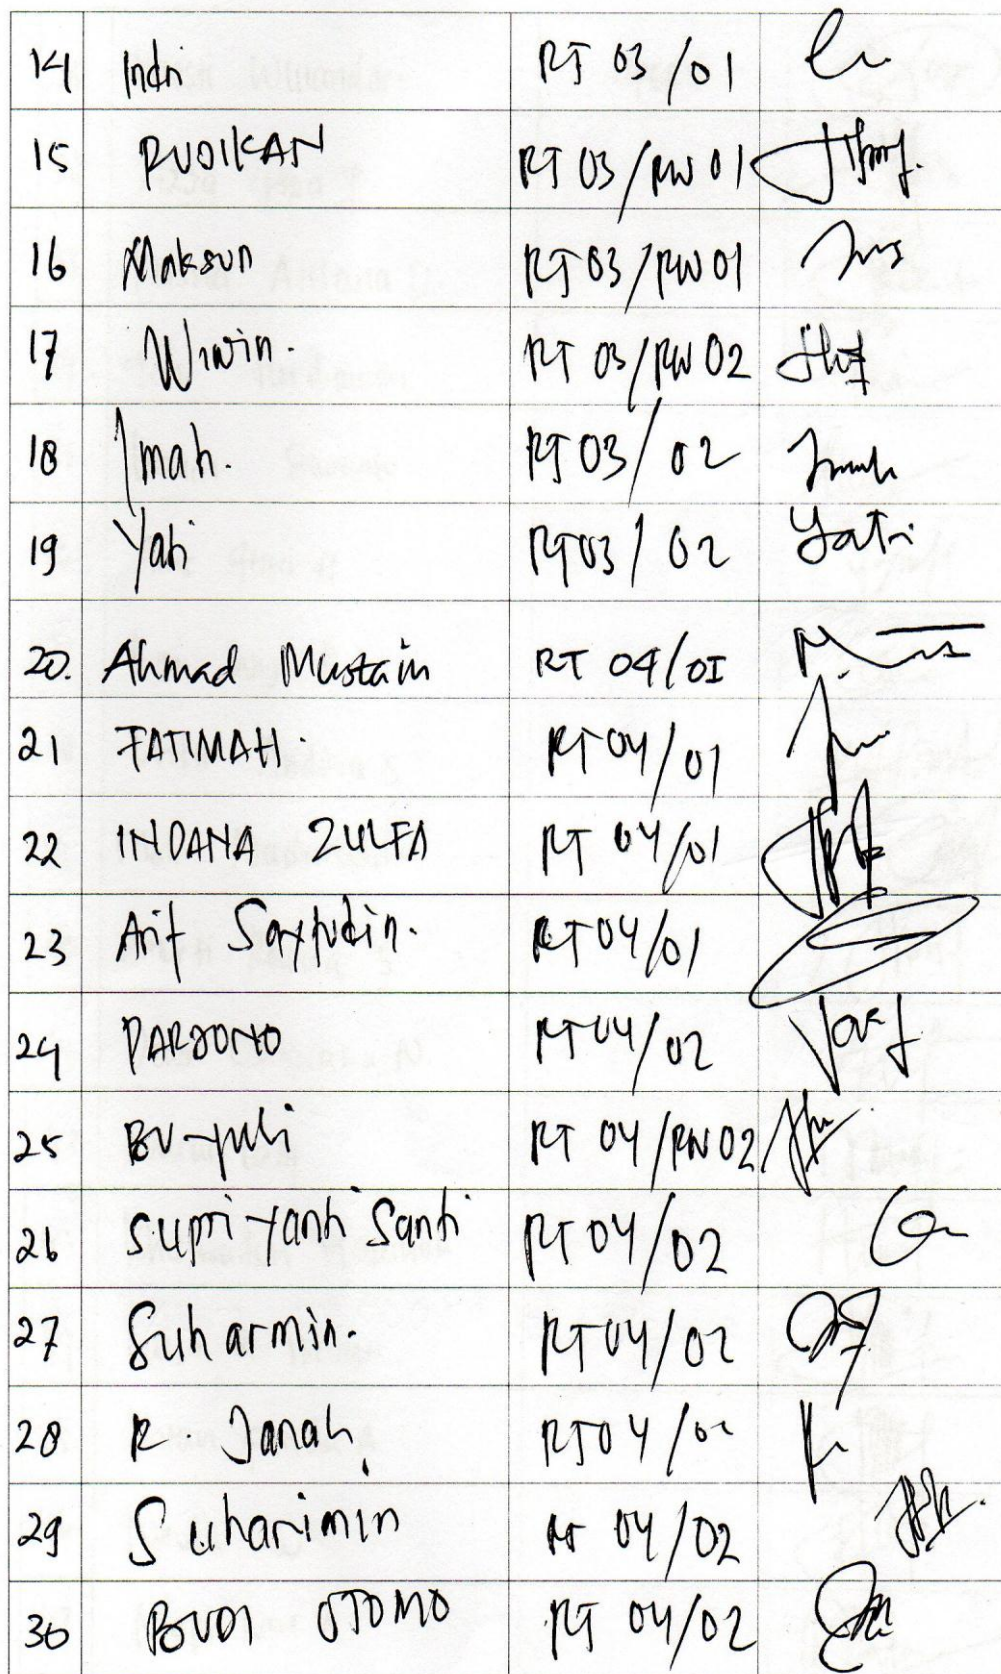 14 Indri RT 03/01
15 RUDIKAN RT 03/RW 01
16 Maksun RT 03/RW 01
17 Wiwin. RT 03/RW 02
18 Imah. RT 03/02
19 Yati RT 03/02 Yati
20. Ahmad Mustain RT 04/01
21 FATIMAH. RT 04/01
22 INDANA ZULFA RT 04/01
23 Arif Sayfudin. RT 04/01
24 PARJONO RT 04/02
25 BU-yuli RT 04/RW 02
26 Supri-yanti Santi RT 04/02
27 Suharmin. RT 04/02
28 R. Janah RT 04/02
29 Suharimin RT 04/02
30 BUDI UTOMO RT 04/02